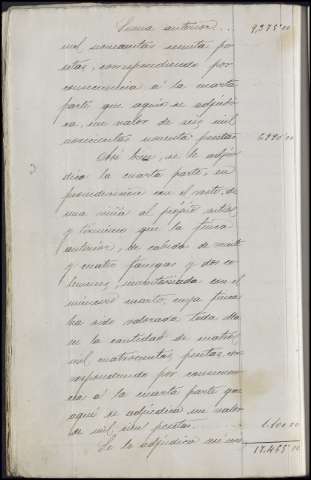 Suma anterior... 9,375 00
mil novecientas noventa pe-
setas, correspondiendo por
consecuencia á la cuarta
parte que aqui se adjudi-
ca, un valor de seis mil
novecientas noventa pesetas 6,990 00
Asi bien, se le adju-
dica la cuarta parte, en
proindivision con el resto, de
una viña al propio sitio
y término que la finca
anterior, de cabida de veinte
y cuatro fanegas y dos ce-
lemines, inventariada con el
número cuarto, cuya finca
ha sido valorada toda ella
en la cantidad de cuatro
mil cuatrocientas pesetas, cor-
respondiendo por consecuen-
cia á la cuarta parte que
aqui se adjudica un valor
de mil cien pesetas. 1,100 00
Se le adjudica asi 17,465 00